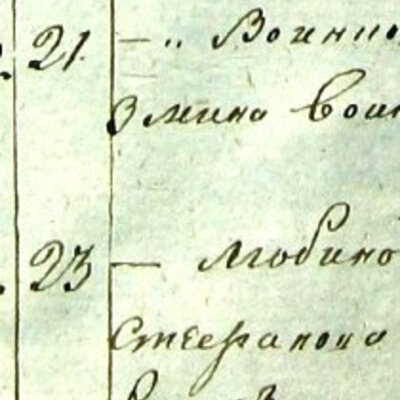 21. — „ Воинно
Змина вои
23 — Любино
Стефанона